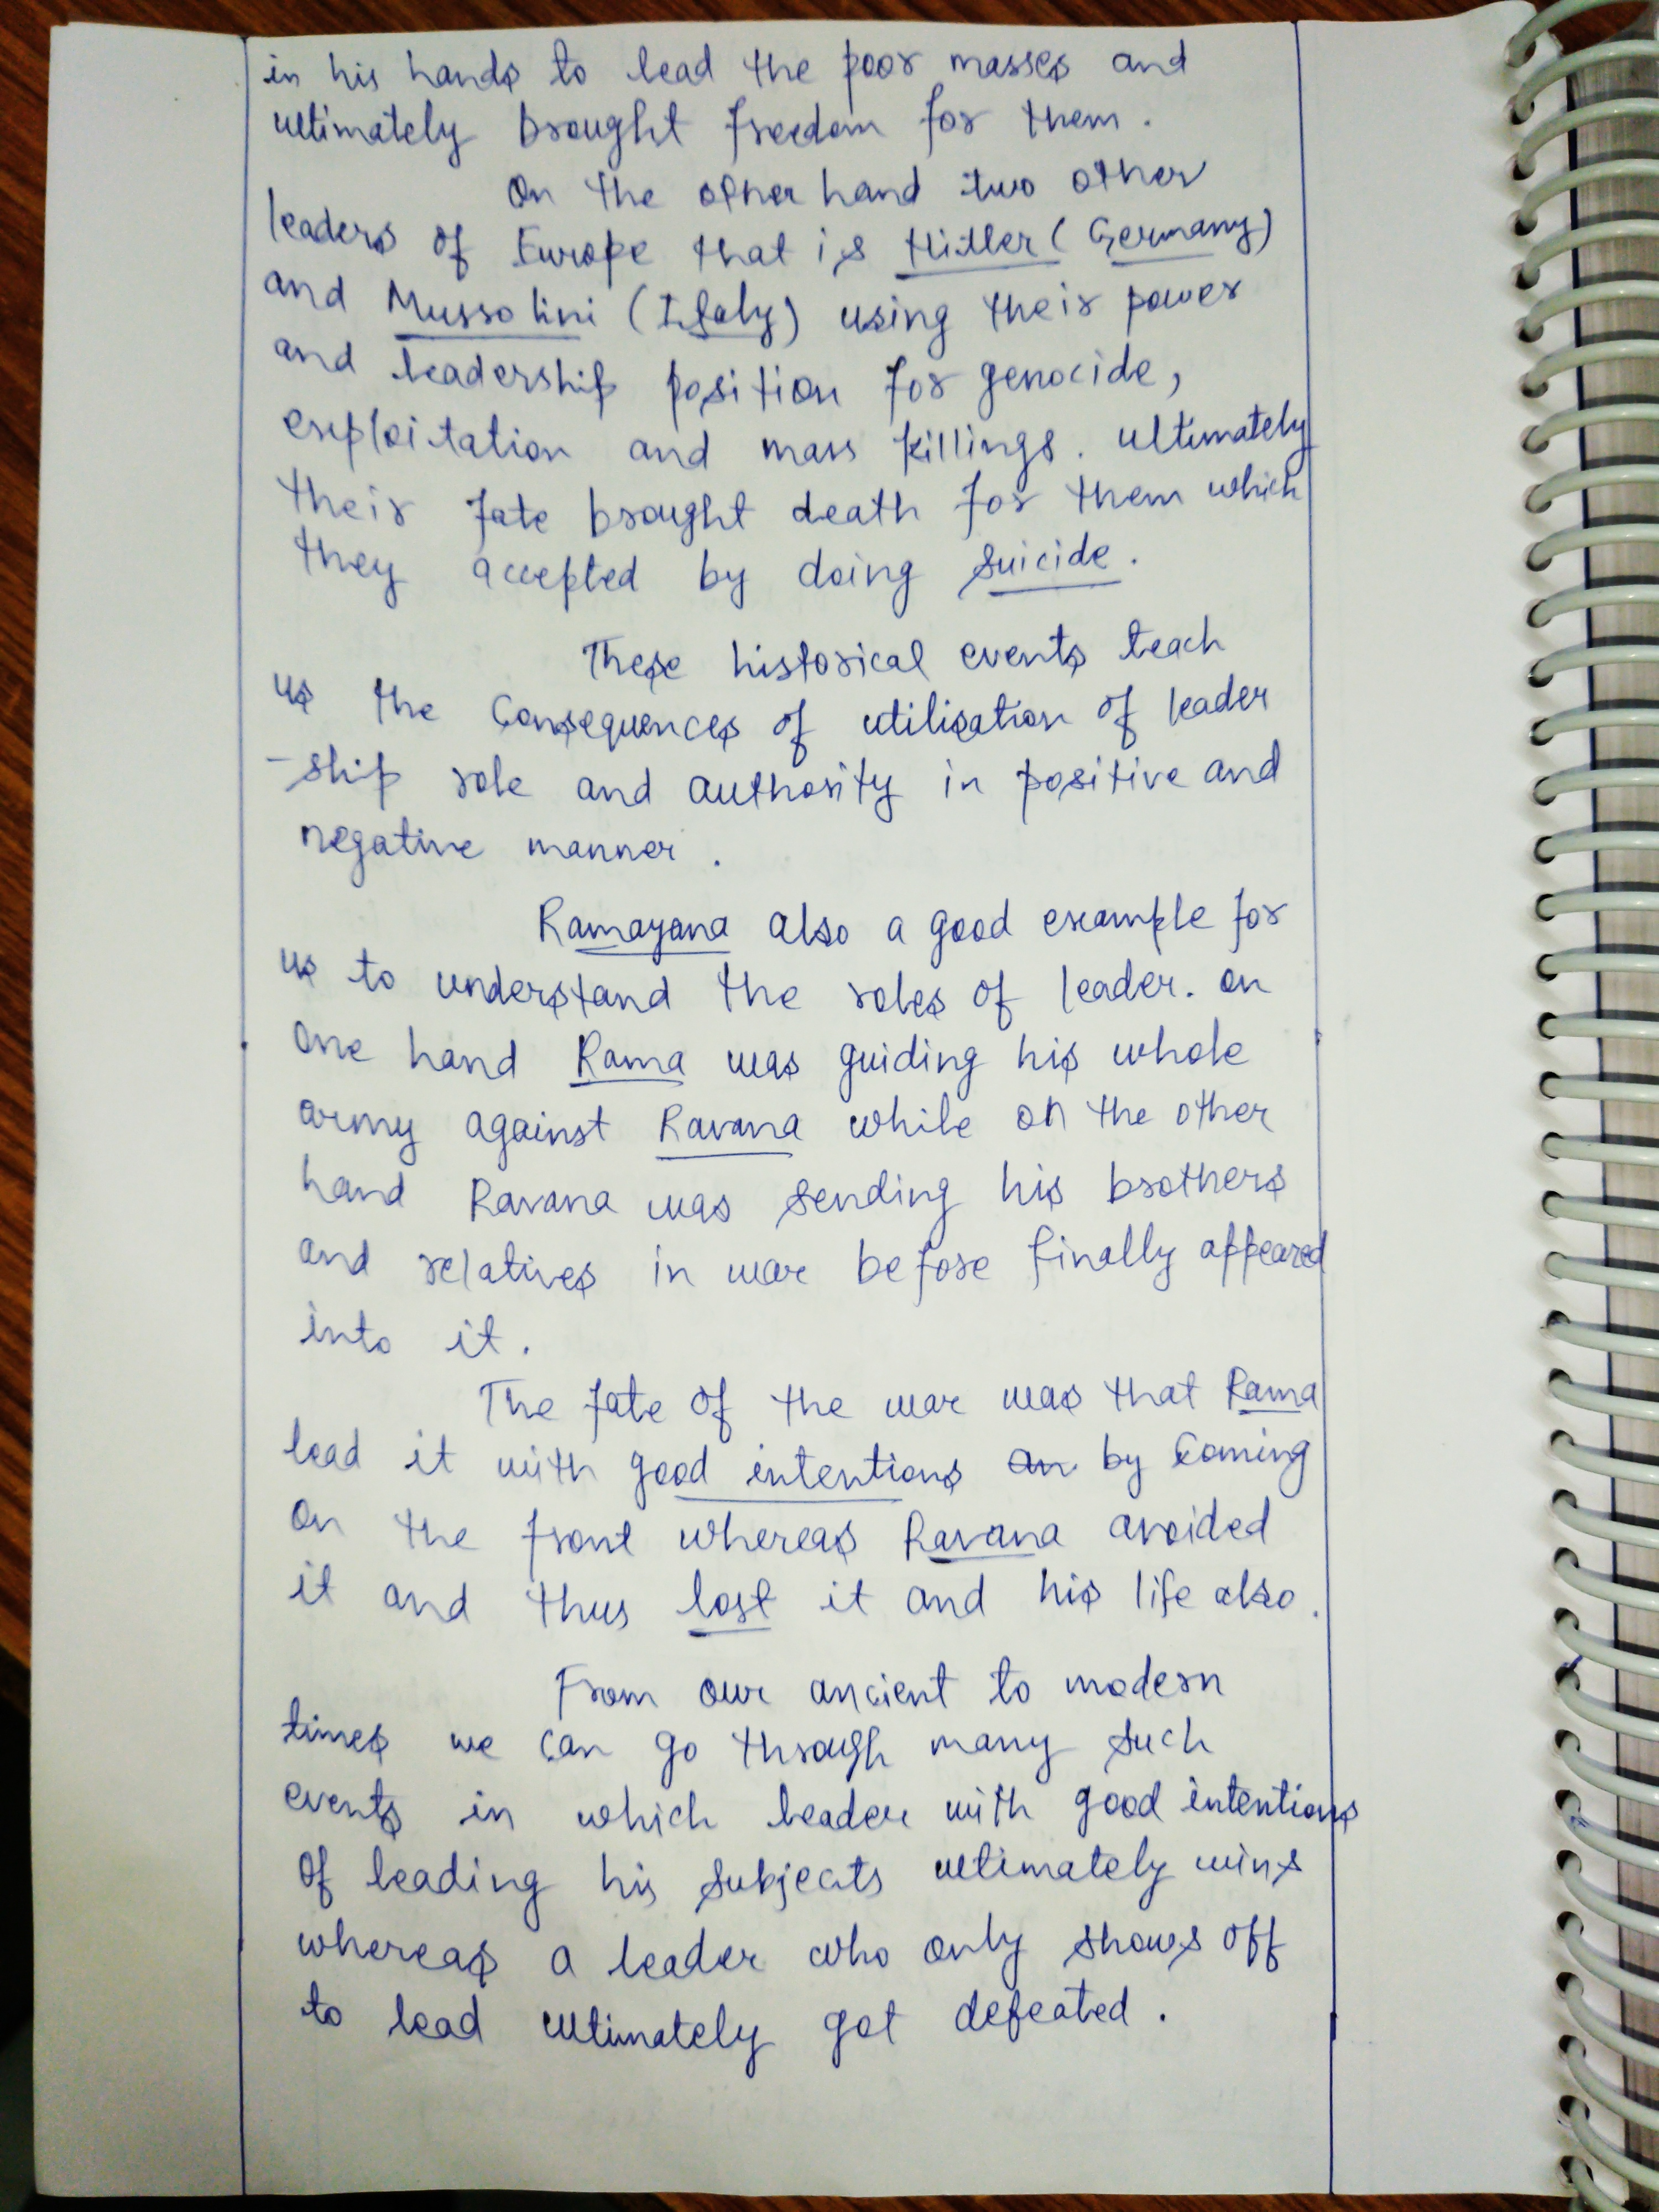 in his hands to lead the poor masses and
ultimately brought freedom for them.
On the other hand two other
leaders of Europe that is Hitler (Germany)
and Mussolini (Italy) using their power
and leadership position for genocide,
exploitation and mass killings. ultimately
their fate brought death for them which
they accepted by doing suicide.
These historical events teach
us the Consequences of utilisation of leader
-ship role and authority in positive and
negative manner.
Ramayana also a good example for
us to understand the roles of leader. on
one hand Rama was guiding his whole
army against Ravana while on the other
hand Ravana was sending his brothers
and relatives in war before finally appeared
into it.
The fate of the war was that Rama
lead it with good intentions an by Coming
on the front whereas Ravana avoided
it and thus lost it and his life also.
From our ancient to modern
times we can go through many such
events in which leader with good intentions
of leading his subjects ultimately wins
whereas a leader who only shows off
to lead ultimately got defeated.